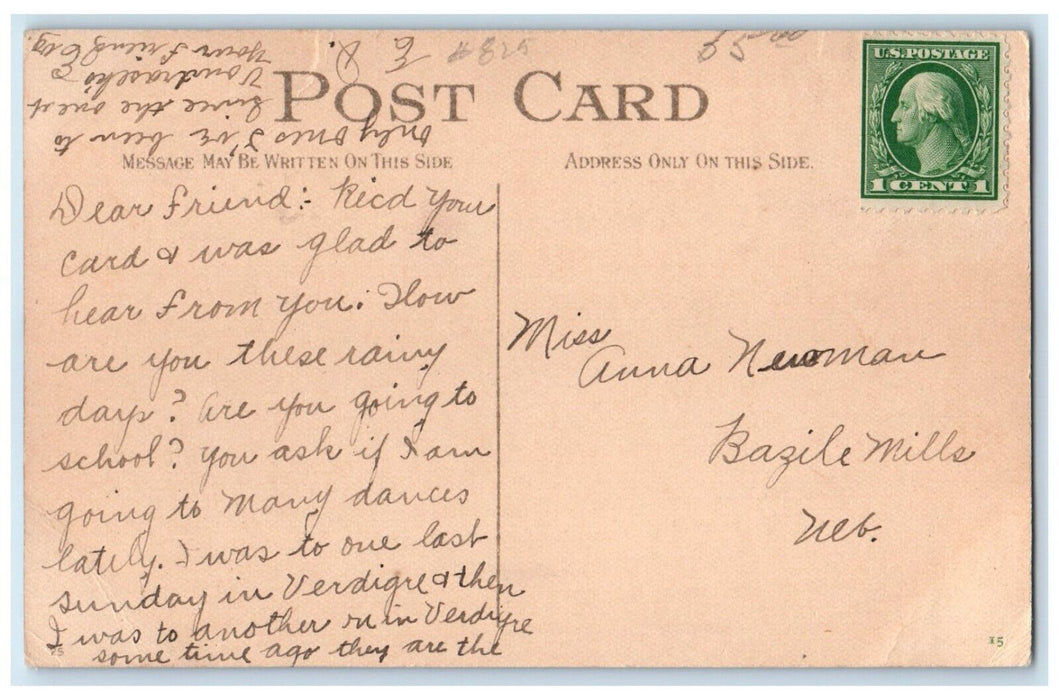 POST CARD
MESSAGE MAY BE WRITTEN ON THIS SIDE
ADDRESS ONLY ON THIS SIDE.
U.S. POSTAGE
1 CENT 1
Dear Friend:- Rec'd your
card & was glad to
hear from you. How
are you these rainy
days? Are you going to
school? You ask if I am
going to many dances
lately. I was to one last
sunday in Verdigre & then
I was to another on in Verdigre
some time ago they are the
only ones I've been to
since the one at
Vondraceks
Your Friend
E. J.
#825
Miss
Anna Newman
Bazile Mills
Neb.
15